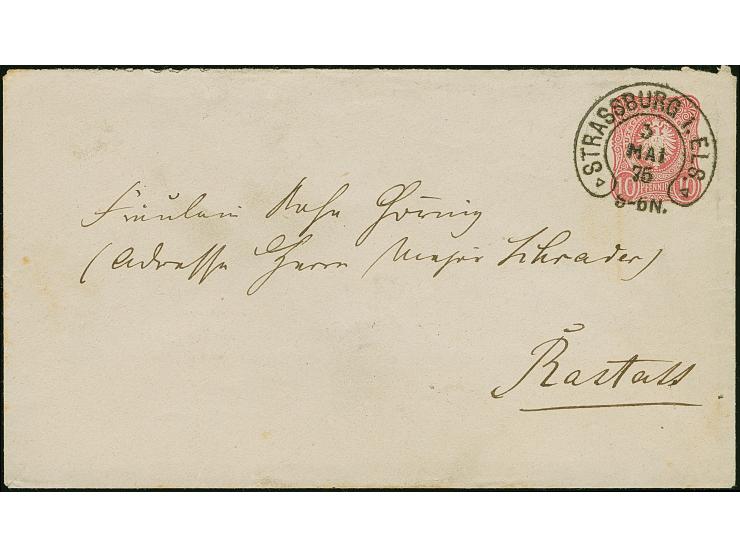 STRASSBURG I. ELS
3
MAI
75
5-6N.
10 PFENNIG 10
Fräulein
(Adresse Herrn Major Schrader)
Rastatt